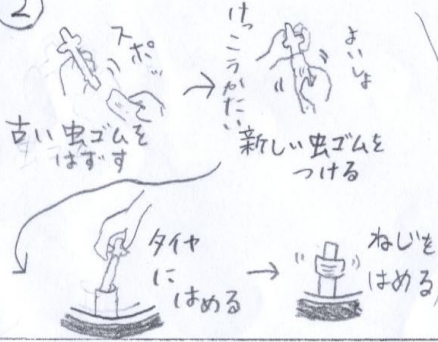 ②
スポッ
古い虫ゴムを
はずす
けっこうかたい
よいしょ
新しい虫ゴムを
つける
タイヤ
に
はめる
ねじを
はめる